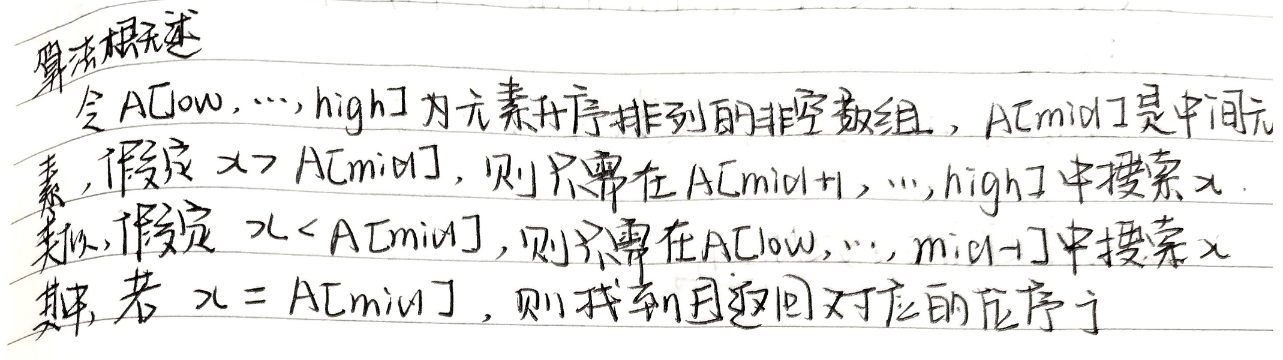 算法概述
令 A[low, …, high] 为元素升序排列的非空数组, A[mid] 是中间元
素, 假定 x > A[mid], 则只需在 A[mid+1, …, high] 中搜索 x.
类似, 假定 x < A[mid], 则只需在 A[low, …, mid-1] 中搜索 x
其中, 若 x = A[mid], 则找到且返回对应的位序 j